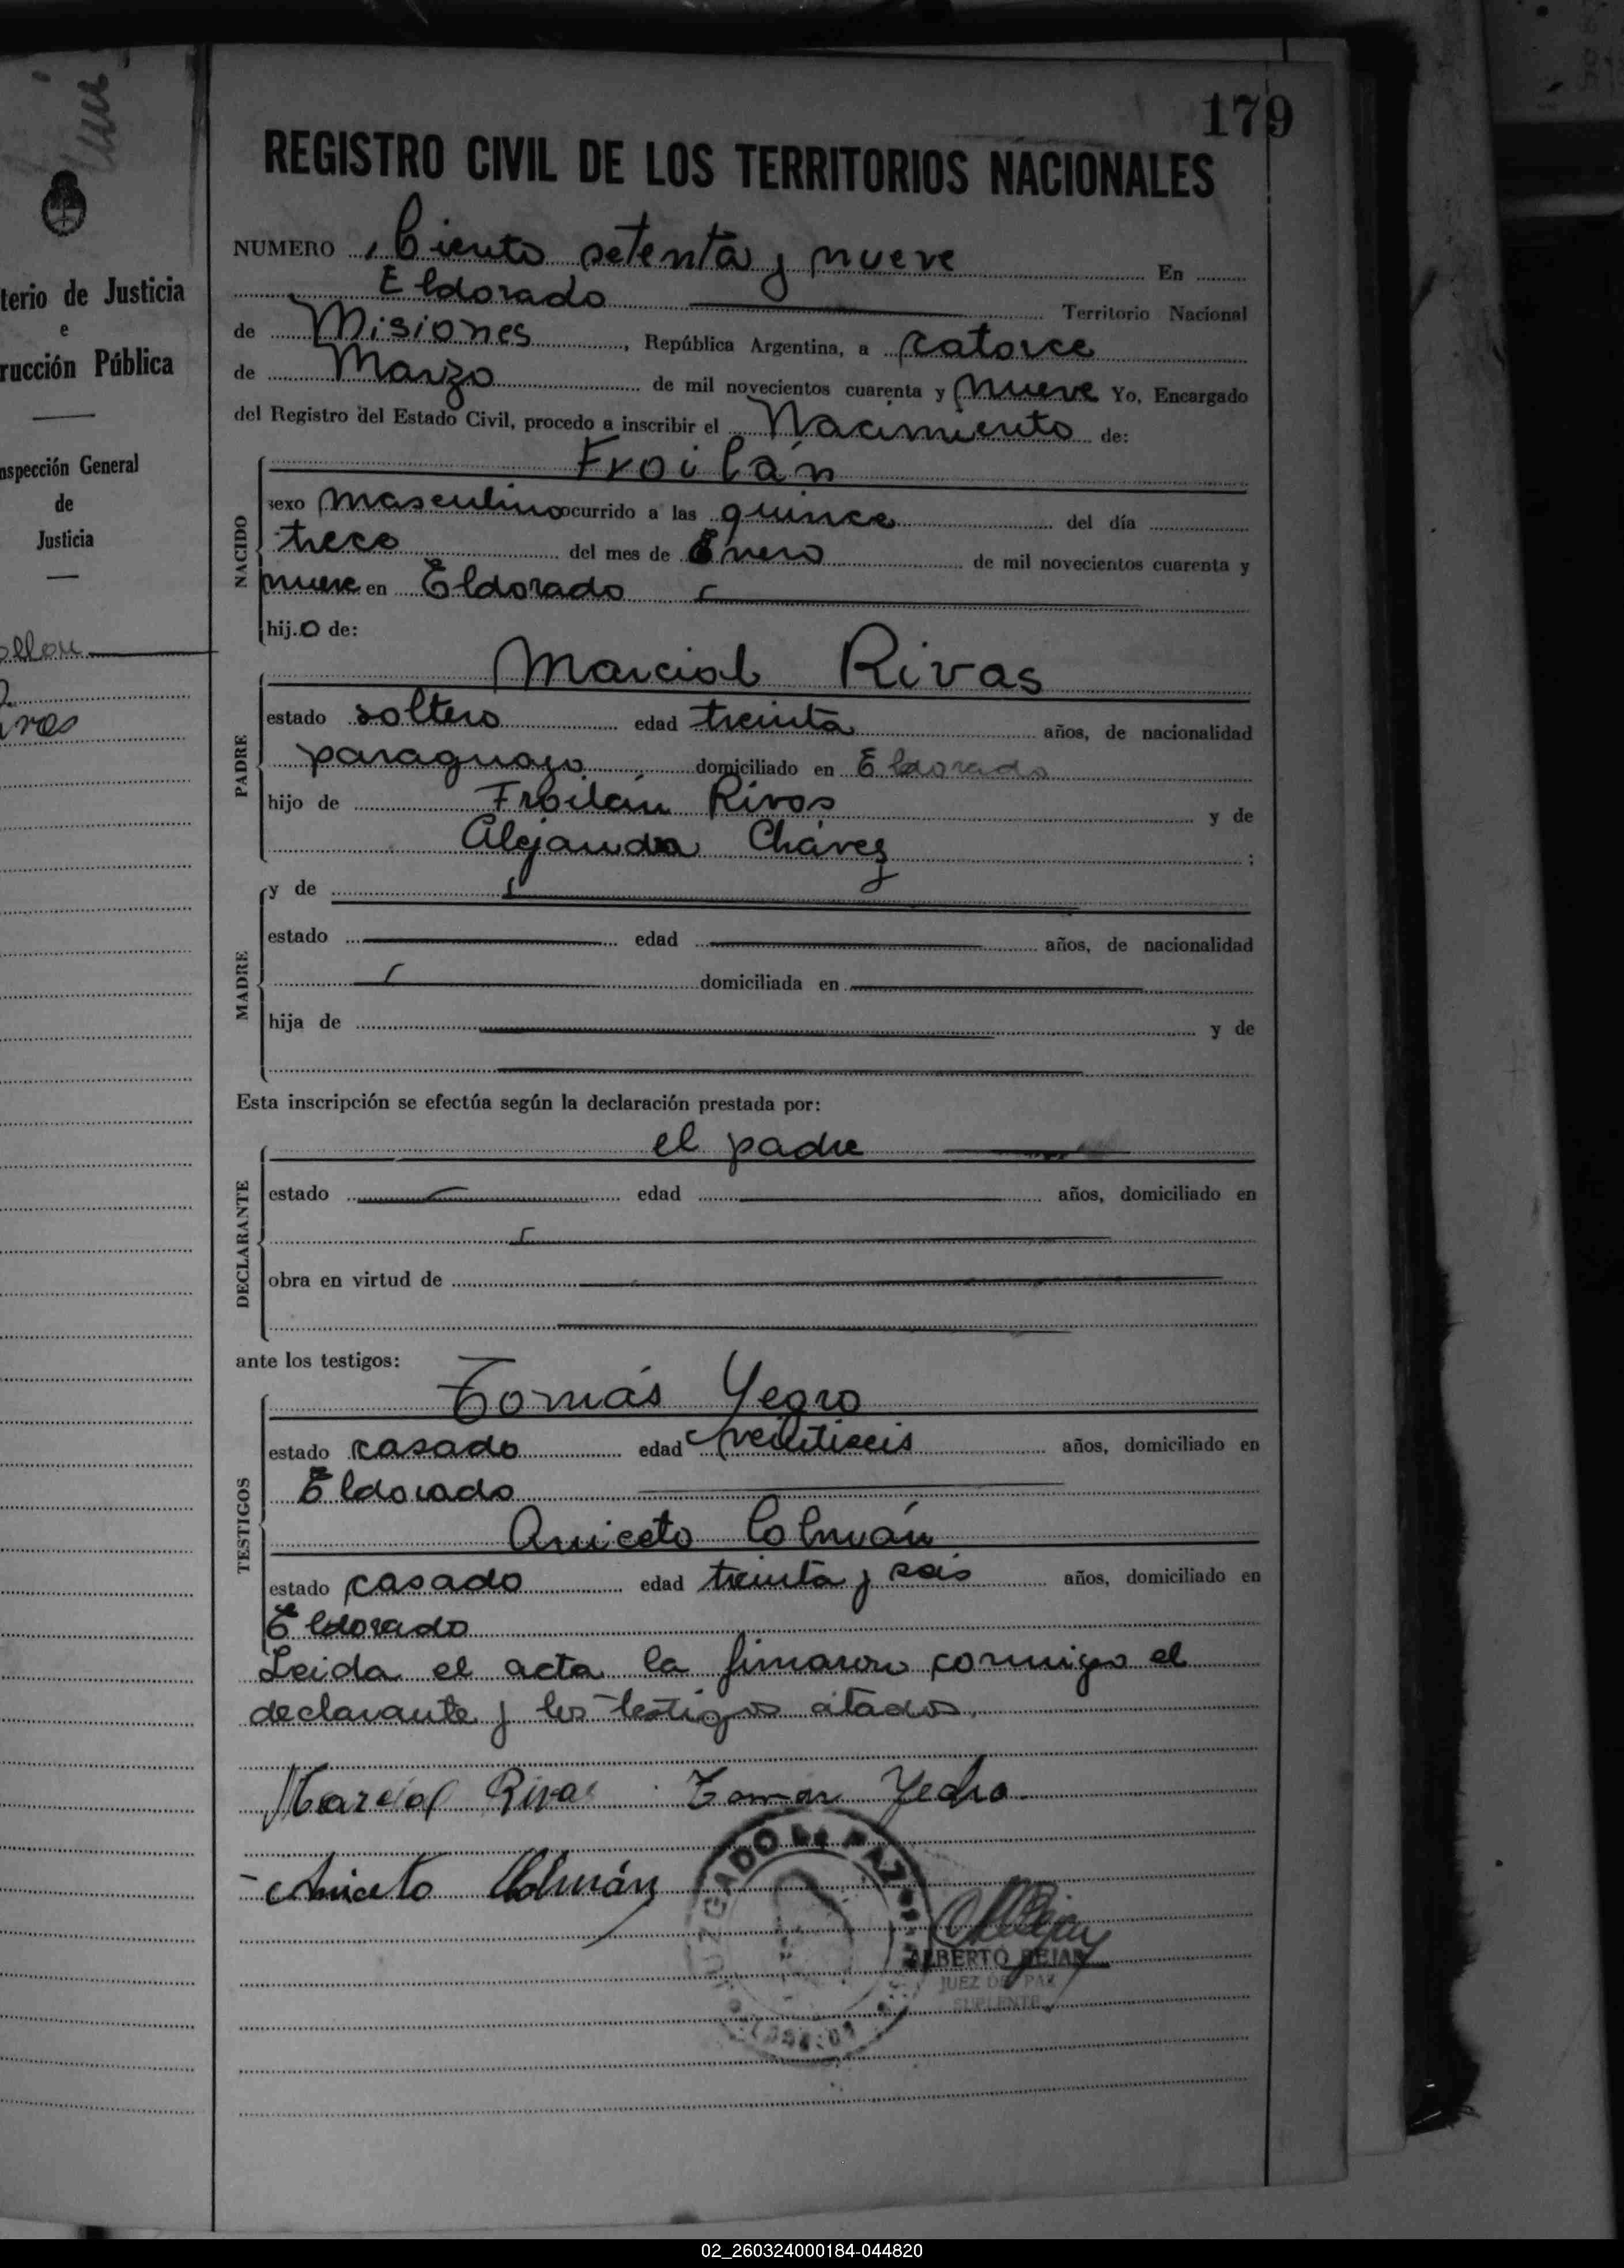 terio de Justicia
e
rucción Pública
nspección General
de
Justicia
179
REGISTRO CIVIL DE LOS TERRITORIOS NACIONALES
NUMERO Ciento setenta y nueve En
Eldorado Territorio Nacional
de Misiones, República Argentina, a catorce
de Marzo de mil novecientos cuarenta y nueve Yo, Encargado
del Registro del Estado Civil, procedo a inscribir el Nacimiento de:
NACIDO
Froilán
sexo masculino ocurrido a las quince del día
trece del mes de Enero de mil novecientos cuarenta y
nueve en Eldorado
hij.o de:
PADRE
Marcial Rivas
estado soltero edad treinta años, de nacionalidad
paraguayo domiciliado en Eldorado
hijo de Froilán Rivas y de
Alejandra Chávez ;
MADRE
y de
estado edad años, de nacionalidad
domiciliada en
hija de y de
Esta inscripción se efectúa según la declaración prestada por:
DECLARANTE
el padre
estado edad años, domiciliado en
obra en virtud de
ante los testigos:
TESTIGOS
Tomás Yegro
estado casado edad veintiseis años, domiciliado en
Eldorado
Aniceto Colmán
estado casado edad treinta y seis años, domiciliado en
Eldorado
Leida el acta la firmaron conmigo el
declarante y los testigos citados.
Marcial Rivas Tomas Yedro
Aniceto Colmán
JUZGADO DE PAZ
ALBERTO BEJAR
JUEZ DE PAZ
SUPLENTE
02_260324000184-044820